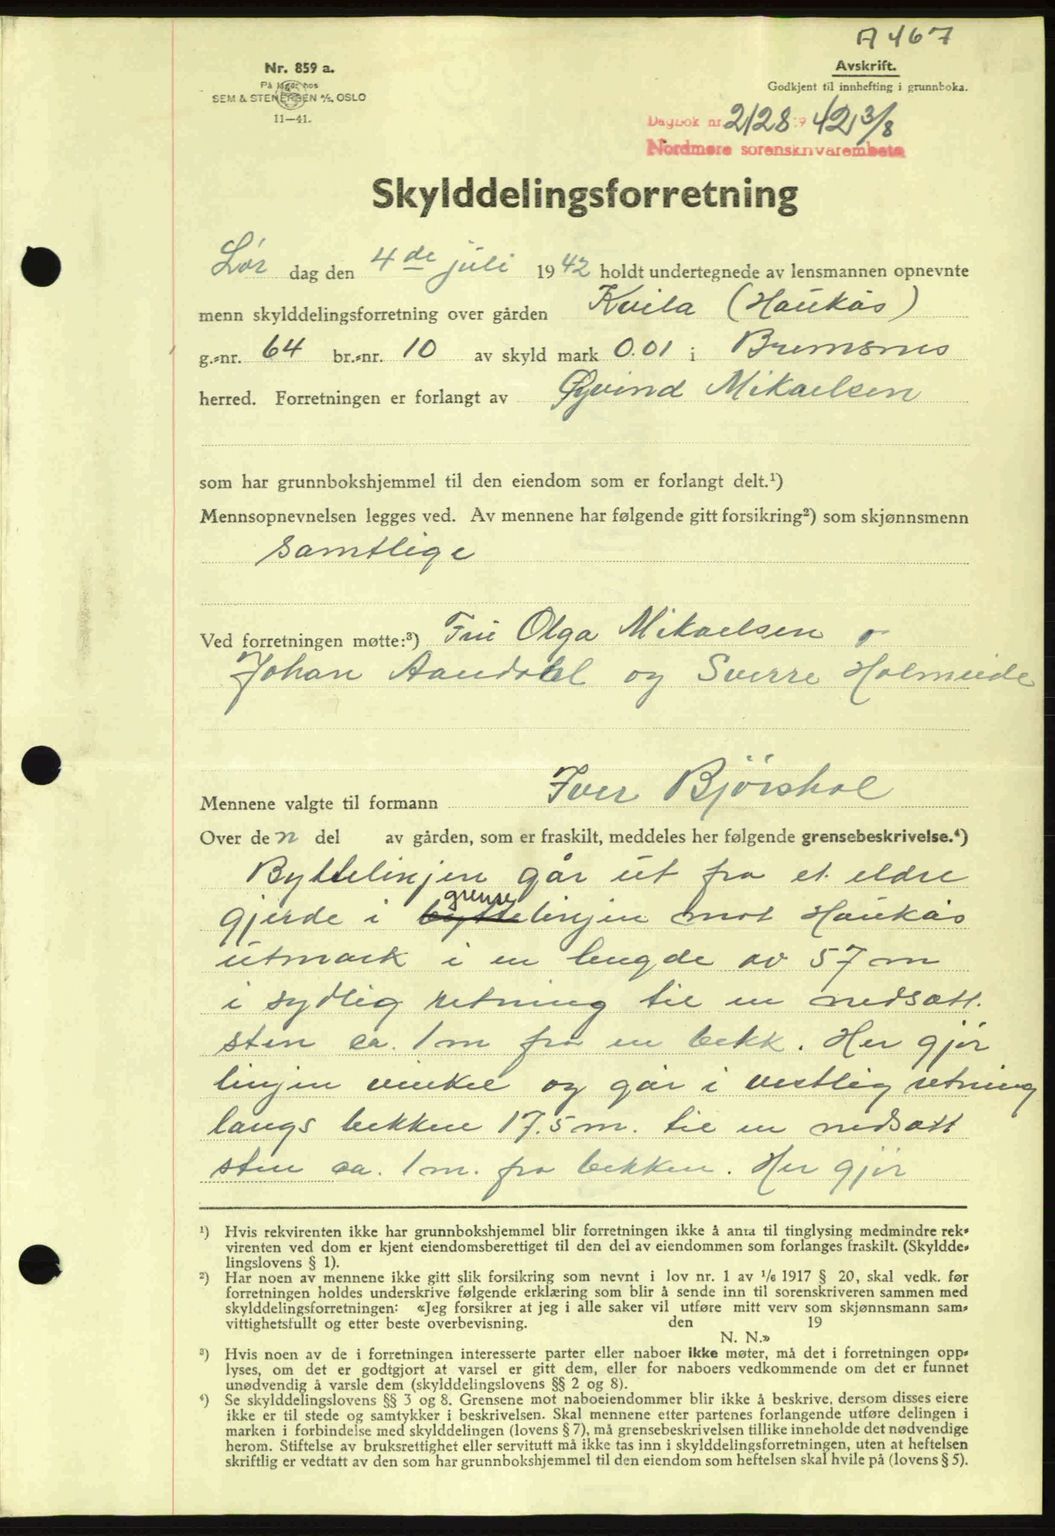 A 467
Nr. 859 a.
På lager hos
SEM & STENERSEN A/S, OSLO
11—41.
Avskrift.
Godkjent til innhefting i grunnboka.
Dagbok nr. 2128 19 42 3/8
Nordmøre sorenskriverembete
Skylddelingsforretning
Lør dag den 4de juli 1942 holdt undertegnede av lensmannen opnevnte
menn skylddelingsforretning over gården Kvila (Haukås)
g.-nr. 64 br.-nr. 10 av skyld mark 0.01 i Bremsnes
herred. Forretningen er forlangt av Øyvind Mikaelsen
som har grunnbokshjemmel til den eiendom som er forlangt delt.¹)
Mennsopnevnelsen legges ved. Av mennene har følgende gitt forsikring²) som skjønnsmenn
samtlige
Ved forretningen møtte:³) Fru Olga Mikaelsen
Johan Aandahl og Sverre Holmeide
Mennene valgte til formann Iver Bjørshol
Over den del av gården, som er fraskilt, meddeles her følgende grensebeskrivelse.⁴)
Byttelinjen går ut fra et eldre
gjerde i grenselinjen mot Haukås
utmark i en lengde av 57 m
i sydlig retning til en nedsatt
sten ca. 1 m fra en bekk. Her gjør
linjen vinkel og går i vestlig retning
langs bekken 17.5 m. til en nedsatt
sten ca. 1 m. fra bekken. Her gjør
¹) Hvis rekvirenten ikke har grunnbokshjemmel blir forretningen ikke å anta til tinglysing medmindre rek-
virenten ved dom er kjent eiendomsberettiget til den del av eiendommen som forlanges fraskilt. (Skyldde-
lingslovens § 1).
²) Har noen av mennene ikke gitt slik forsikring som nevnt i lov nr. 1 av 1/6 1917 § 20, skal vedk. før
forretningen holdes underskrive følgende erklæring som blir å sende inn til sorenskriveren sammen med
skylddelingsforretningen: «Jeg forsikrer at jeg i alle saker vil utføre mitt verv som skjønnsmann sam-
vittighetsfullt og etter beste overbevisning. den 19
N. N.»
³) Hvis noen av de i forretningen interesserte parter eller naboer ikke møter, må det i forretningen opp-
lyses, om det er godtgjort at varsel er gitt dem, eller for naboers vedkommende om det er funnet
unødvendig å varsle dem (skylddelingslovens §§ 2 og 8).
⁴) Se skylddelingslovens §§ 3 og 8. Grensene mot naboeiendommer blir ikke å beskrive, dersom disses eiere
ikke er til stede og samtykker i beskrivelsen. Skal mennene etter partenes forlangende utføre delingen i
marken i forbindelse med skylddelingen (lovens § 7), må grensebeskrivelsen tillike inneholde det nødvendige
herom. Stiftelse av bruksrettighet eller servitutt må ikke tas inn i skylddelingsforretningen, uten at heftelsen
skriftlig er vedtatt av den som har grunnbokshjemmel til den eiendom som heftelsen skal hvile på (lovens § 5).